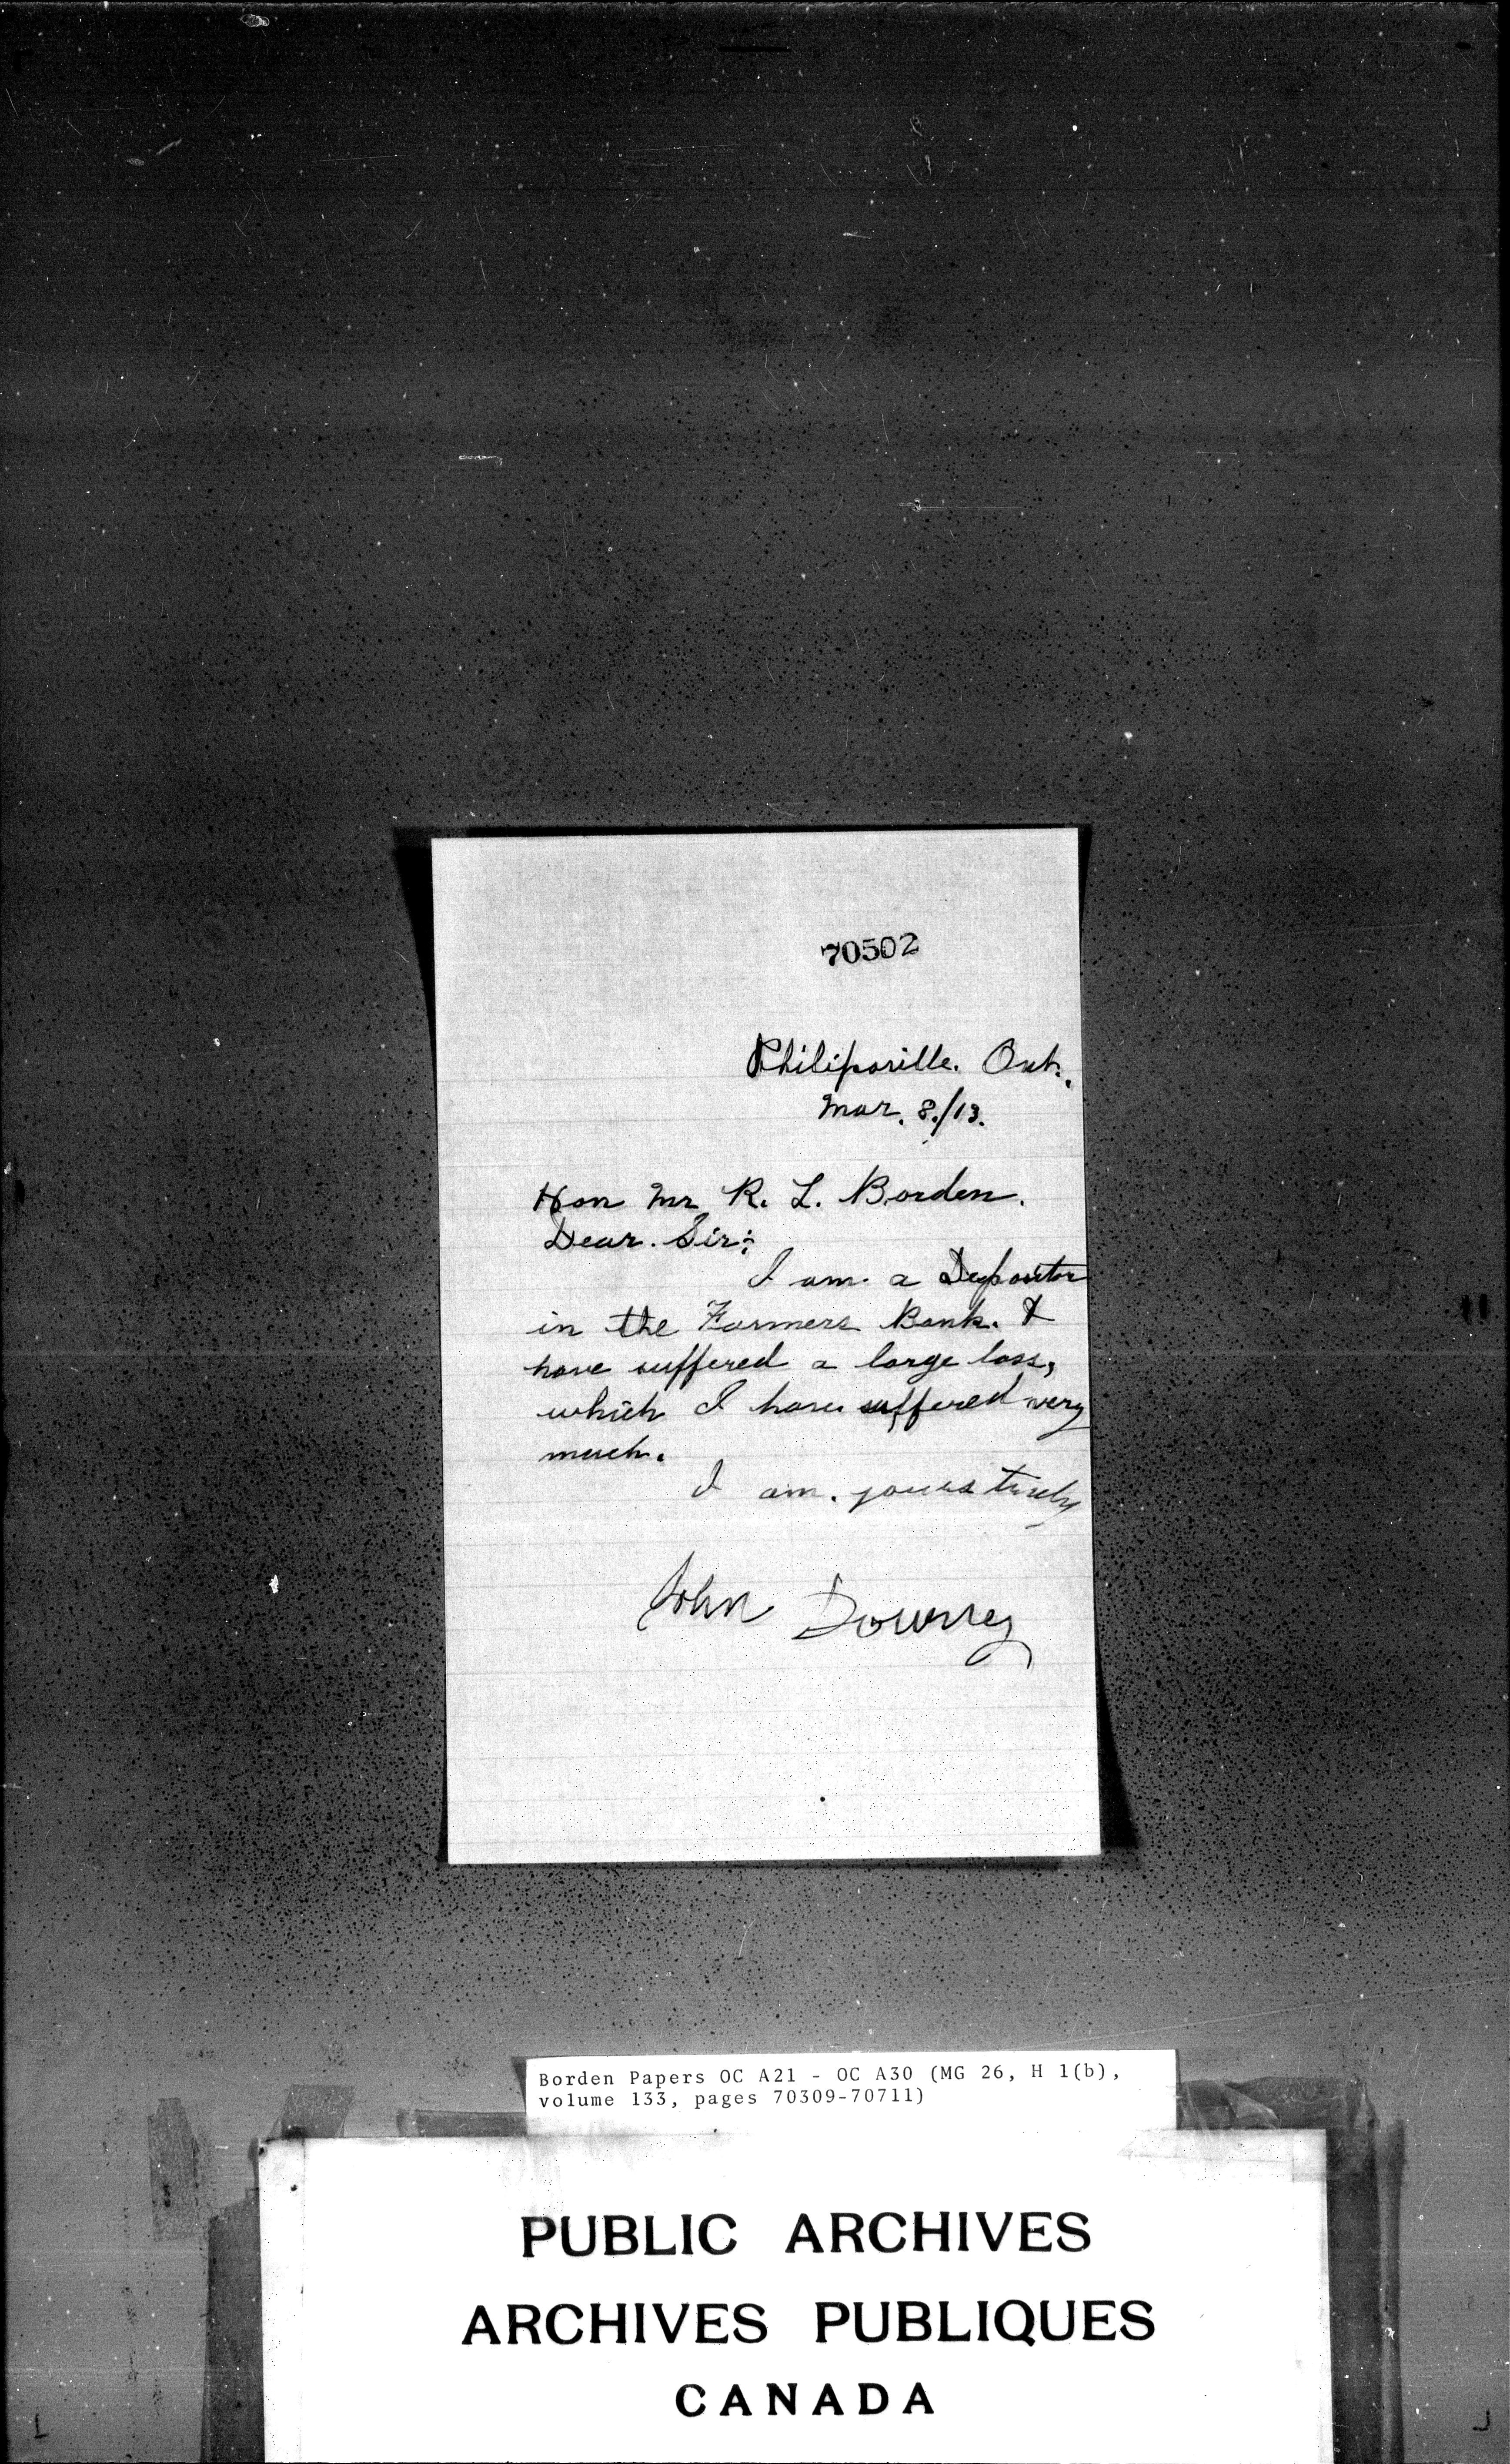 70502
Philipsville. Ont.
Mar. 8./13.
Hon Mr R. L. Borden.
Dear. Sir:
I am. a Depositor
in the Farmers Bank. &
have suffered a large loss,
which I have suffered very
much.
I am. yours truly
John Downey
Borden Papers OC A21 - OC A30 (MG 26, H 1(b),
volume 133, pages 70309-70711)
PUBLIC ARCHIVES
ARCHIVES PUBLIQUES
CANADA